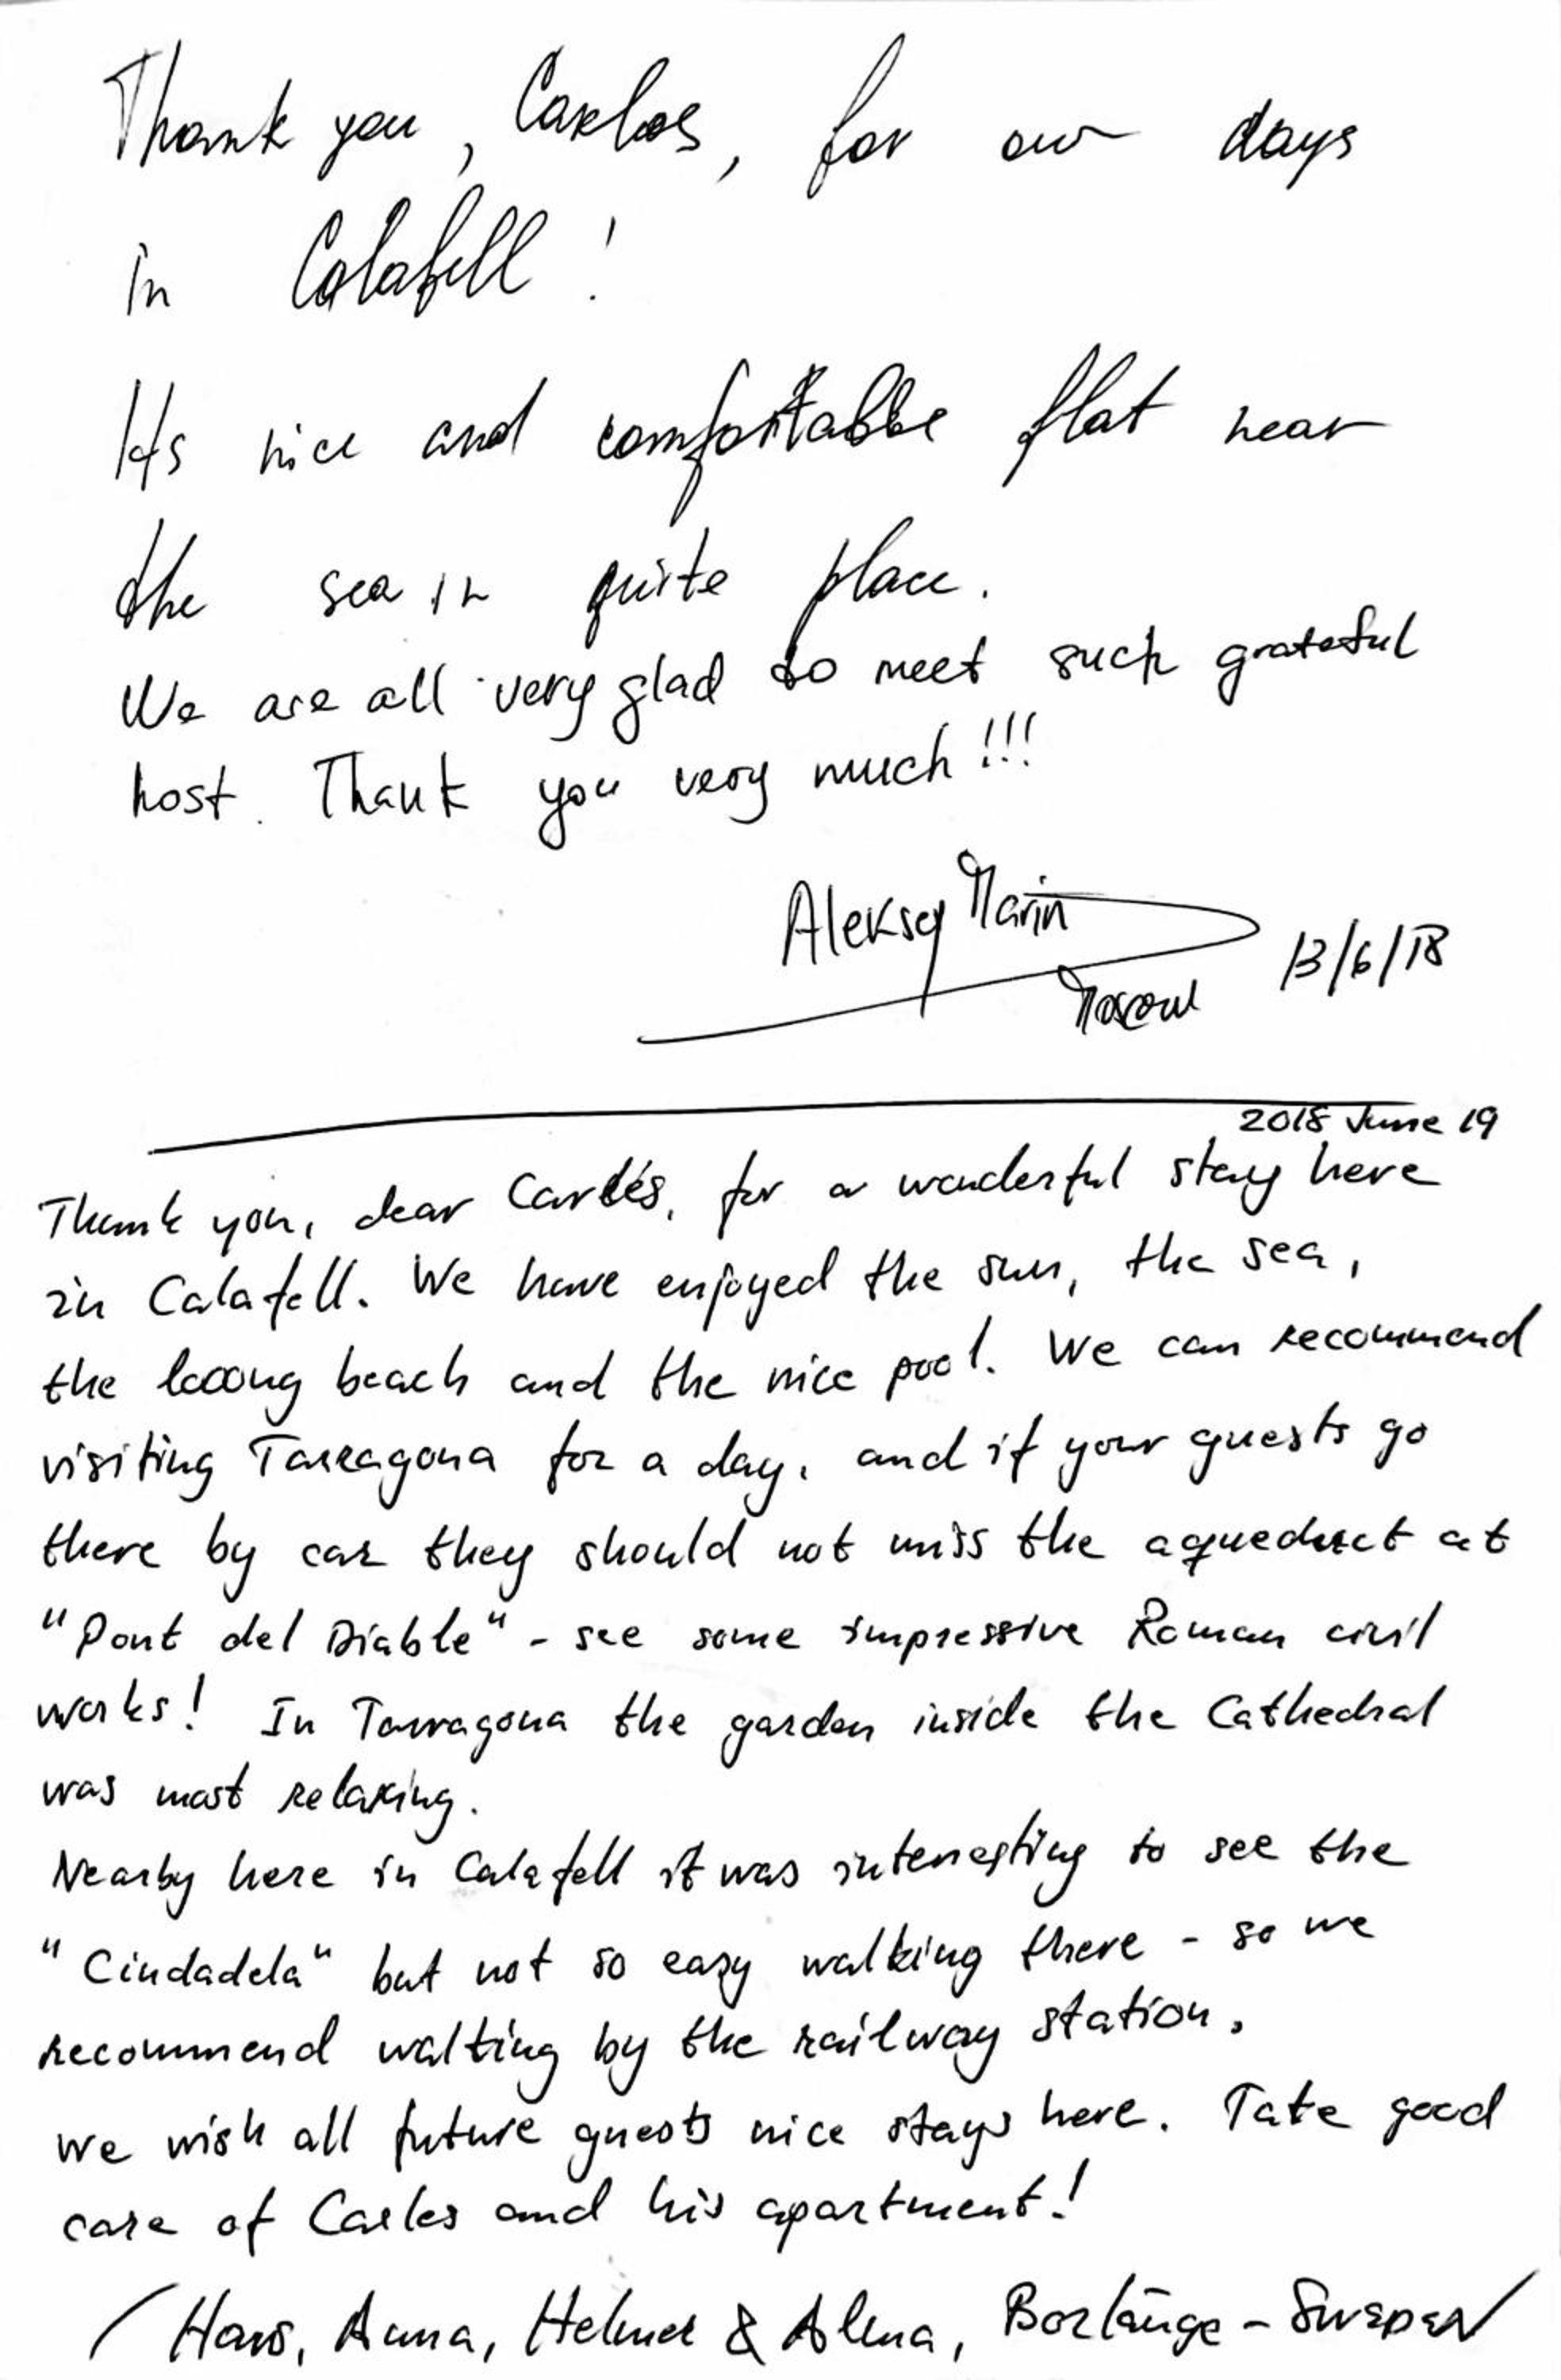 Thank you, Carlos, for our days
in Calafell!
Its nice and comfortable flat near
the sea in quite place.
We are all very glad to meet such grateful
host. Thank you very much!!!
Aleksey Marin
Moscow 13/6/18
2018 June 19
Thank you, dear Carles, for a wonderful stay here
in Calafell. We have enjoyed the sun, the sea,
the looong beach and the nice pool. We can recommend
visiting Tarragona for a day, and if your guests go
there by car they should not miss the aqueduct at
"Pont del Diable" - see some impressive Roman civil
works! In Tarragona the garden inside the Cathedral
was most relaxing.
Nearby here in Calafell it was interresting to see the
"Ciudadela" but not so easy walking there - so we
recommend walking by the railway station.
We wish all future guests nice stays here. Take good
care of Carles and his apartment!
/Hans, Anna, Helmer & Alma, Borlänge - SWEDEN/